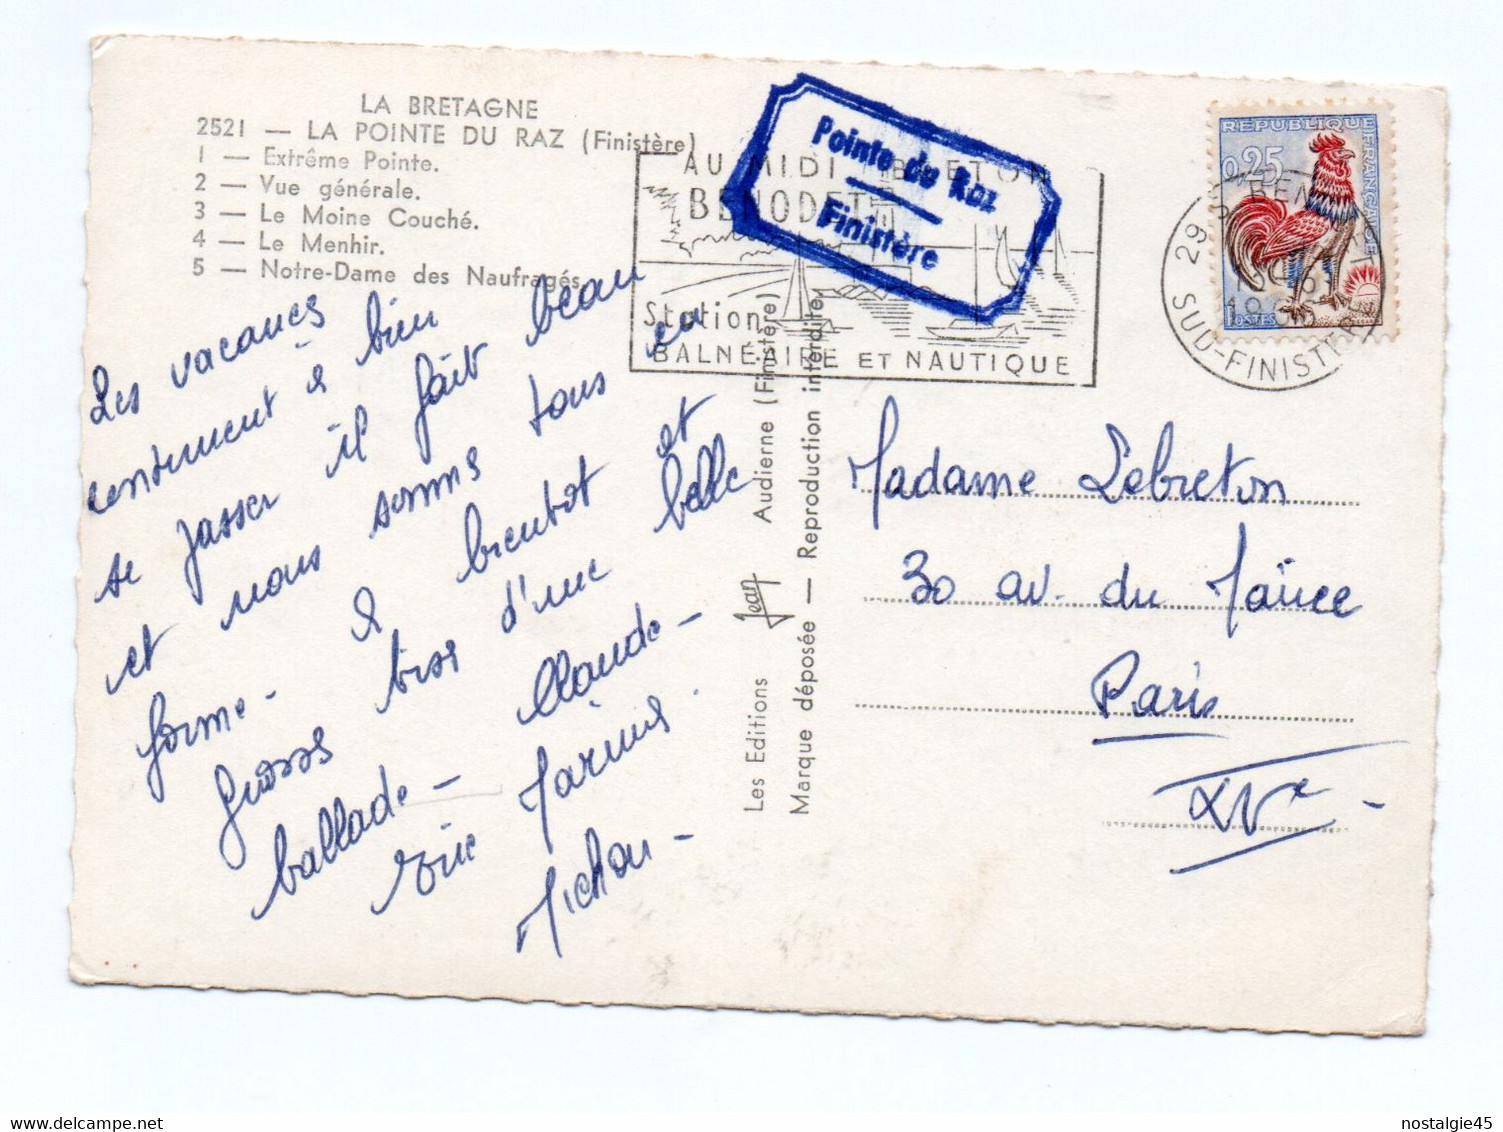 LA BRETAGNE
2521 — LA POINTE DU RAZ (Finistère)
1 — Extrême Pointe.
2 — Vue générale.
3 — Le Moine Couché.
4 — Le Menhir.
5 — Notre-Dame des Naufragés.
Les vacances
continuent à bien
se passer il fait beau
et nous sommes tous en
forme - à bientôt et
grosses bises d'une belle
ballade - Claude -
Eric Marinus.
Michou -
AU MIDI BRETON
BENODET
Station
BALNÉAIRE ET NAUTIQUE
Pointe du Raz
Finistère
Les Editions Jean Audierne (Finistère)
Marque déposée — Reproduction interdite.
RÉPUBLIQUE FRANÇAISE
0,25
POSTES
29 S
SUD-FINISTÈRE
Madame Lebreton
30 av. du Maine
Paris
XVe -
nostalgie45